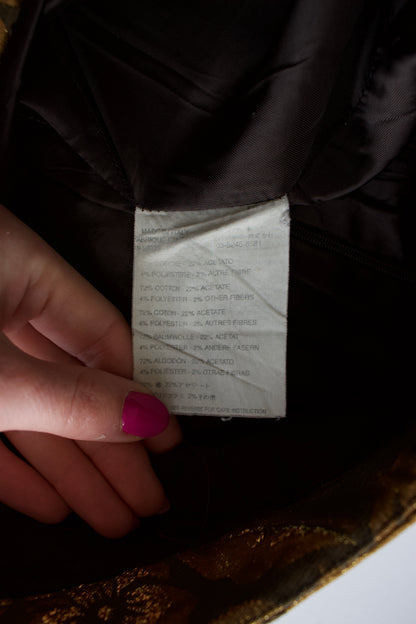 MADE IN ITALY
COTONE - 22% ACETATO
4% POLIESTERE - 2% ALTRE FIBRE
72% COTTON - 22% ACETATE
4% POLYESTER - 2% OTHER FIBERS
72% COTON - 22% ACETATE
4% POLYESTER - 2% AUTRES FIBRES
BAUMWOLLE - 22% ACETAT
4% POLYESTER - 2% ANDERE FASERN
72% ALGODÓN - 22% ACETATO
4% POLIESTER - 2% OTRAS FIBRAS
綿 22%アセテート
2%その他
REVERSE FOR CARE INSTRUCTION